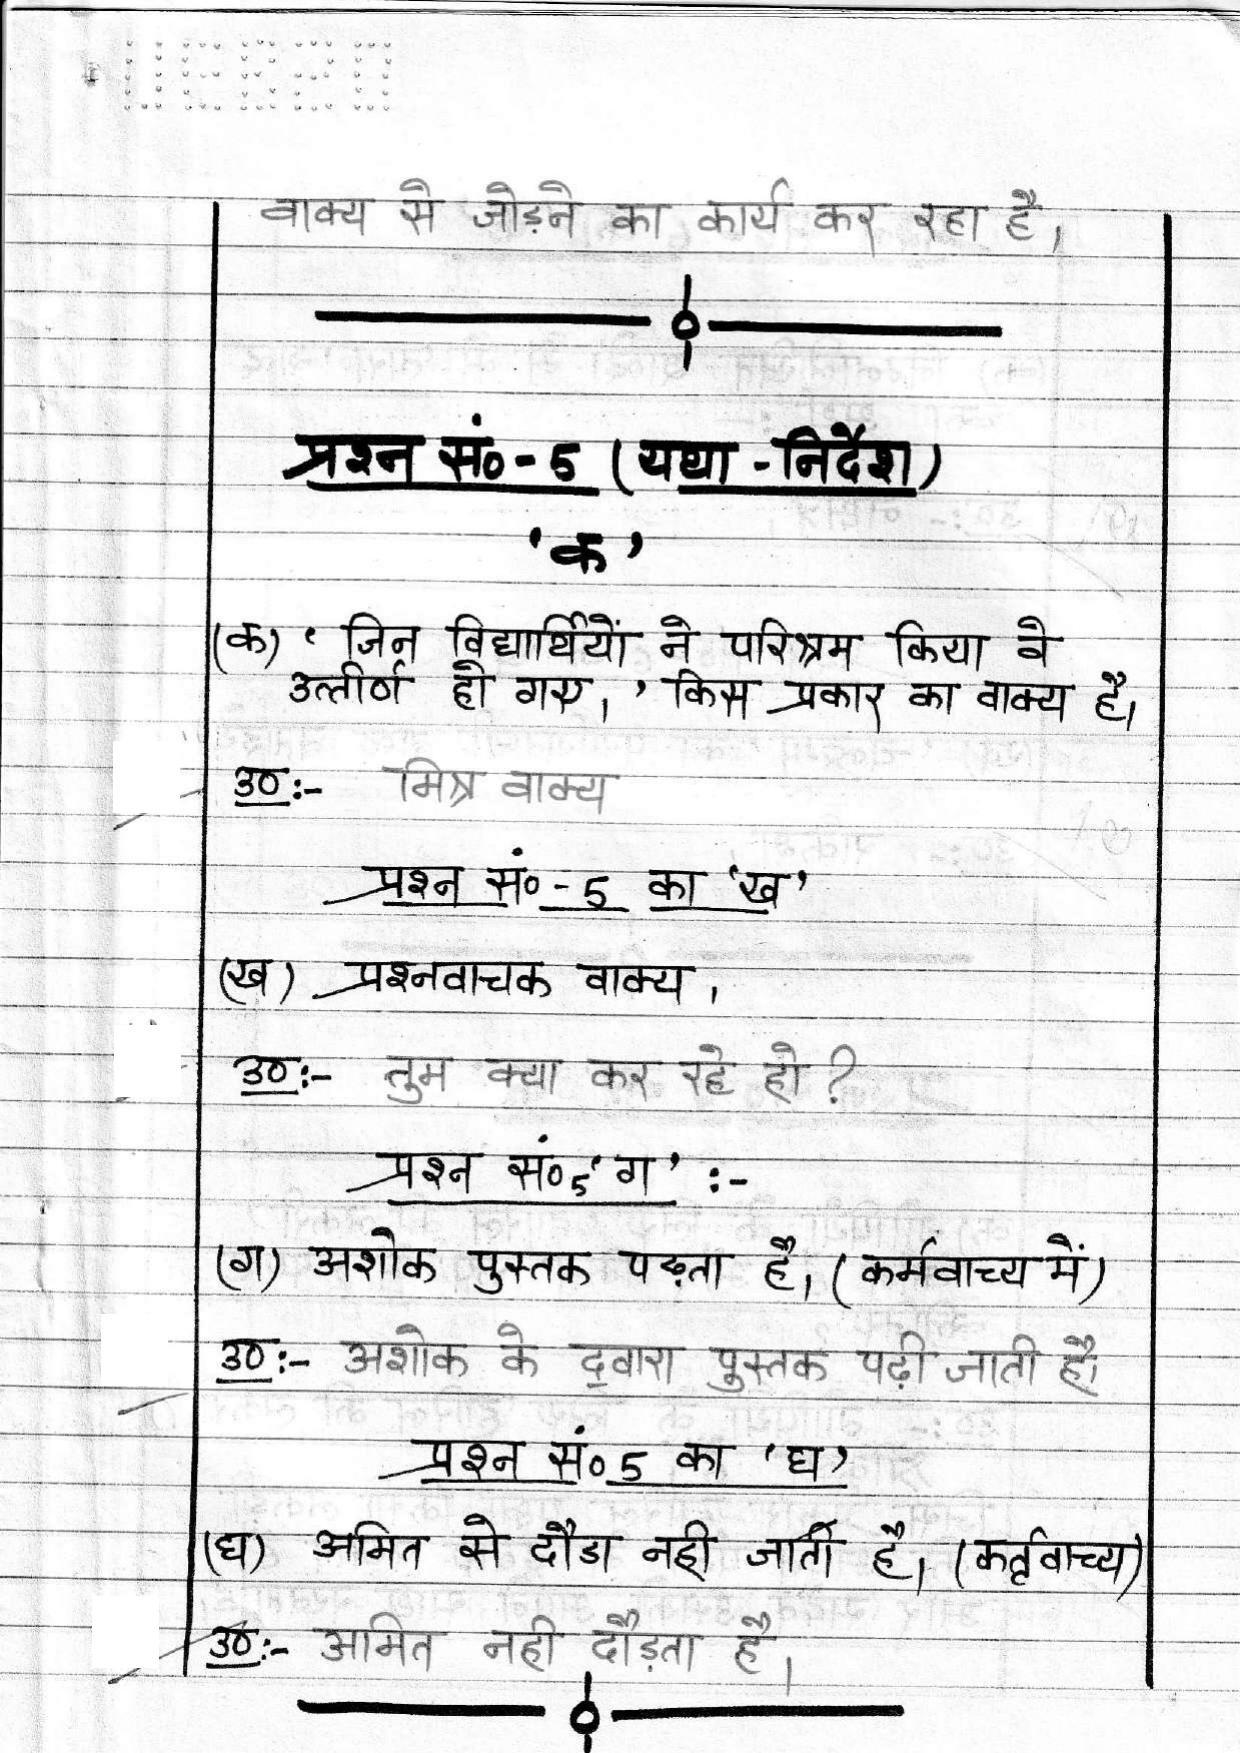 वाक्य से जोड़ने का कार्य कर रहा है।
प्रश्न सं०-5 (यथा-निर्देश)
'क'
(क) ' जिन विद्यार्थियों ने परिश्रम किया वे
उत्तीर्ण हो गए।' किस प्रकार का वाक्य है।
उ०:- मिश्र वाक्य
प्रश्न सं०-5 का 'ख'
(ख) प्रश्नवाचक वाक्य।
उ०:- तुम क्या कर रहे हो?
प्रश्न सं०5 'ग' :-
(ग) अशोक पुस्तक पढ़ता है। (कर्मवाच्य में)
उ०:- अशोक के द्वारा पुस्तक पढ़ी जाती है।
प्रश्न सं० 5 का 'घ'
(घ) अमित से दौडा नही जाती है। (कर्तृवाच्य)
उ०:- अमित नही दौड़ता है।